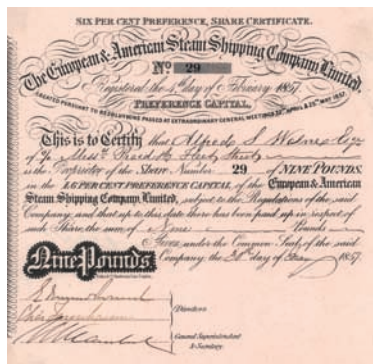 SIX PER CENT PREFERENCE, SHARE CERTIFICATE.
The European & American Steam Shipping Company Limited.
No 29
Registered the 4th day of February 1857.
CREATED PURSUANT TO RESOLUTIONS PASSED AT EXTRAORDINARY GENERAL MEETINGS APRIL & MAY 1857.
PREFERENCE CAPITAL.
This is to Certify that Alfred S
of Street
is the Proprietor of the Share Number 29 of NINE POUNDS.
in the £6 PER CENT PREFERENCE CAPITAL of the European & American
Steam Shipping Company, Limited, subject to the Regulations of the said
Company, and that up to this date there has been paid up in respect of
such Share, the sum of Nine Pounds
Given under the Common Seal, of the said
Company the day of 1857.
Nine Pounds
Directors
General Superintendent
& Secretary.